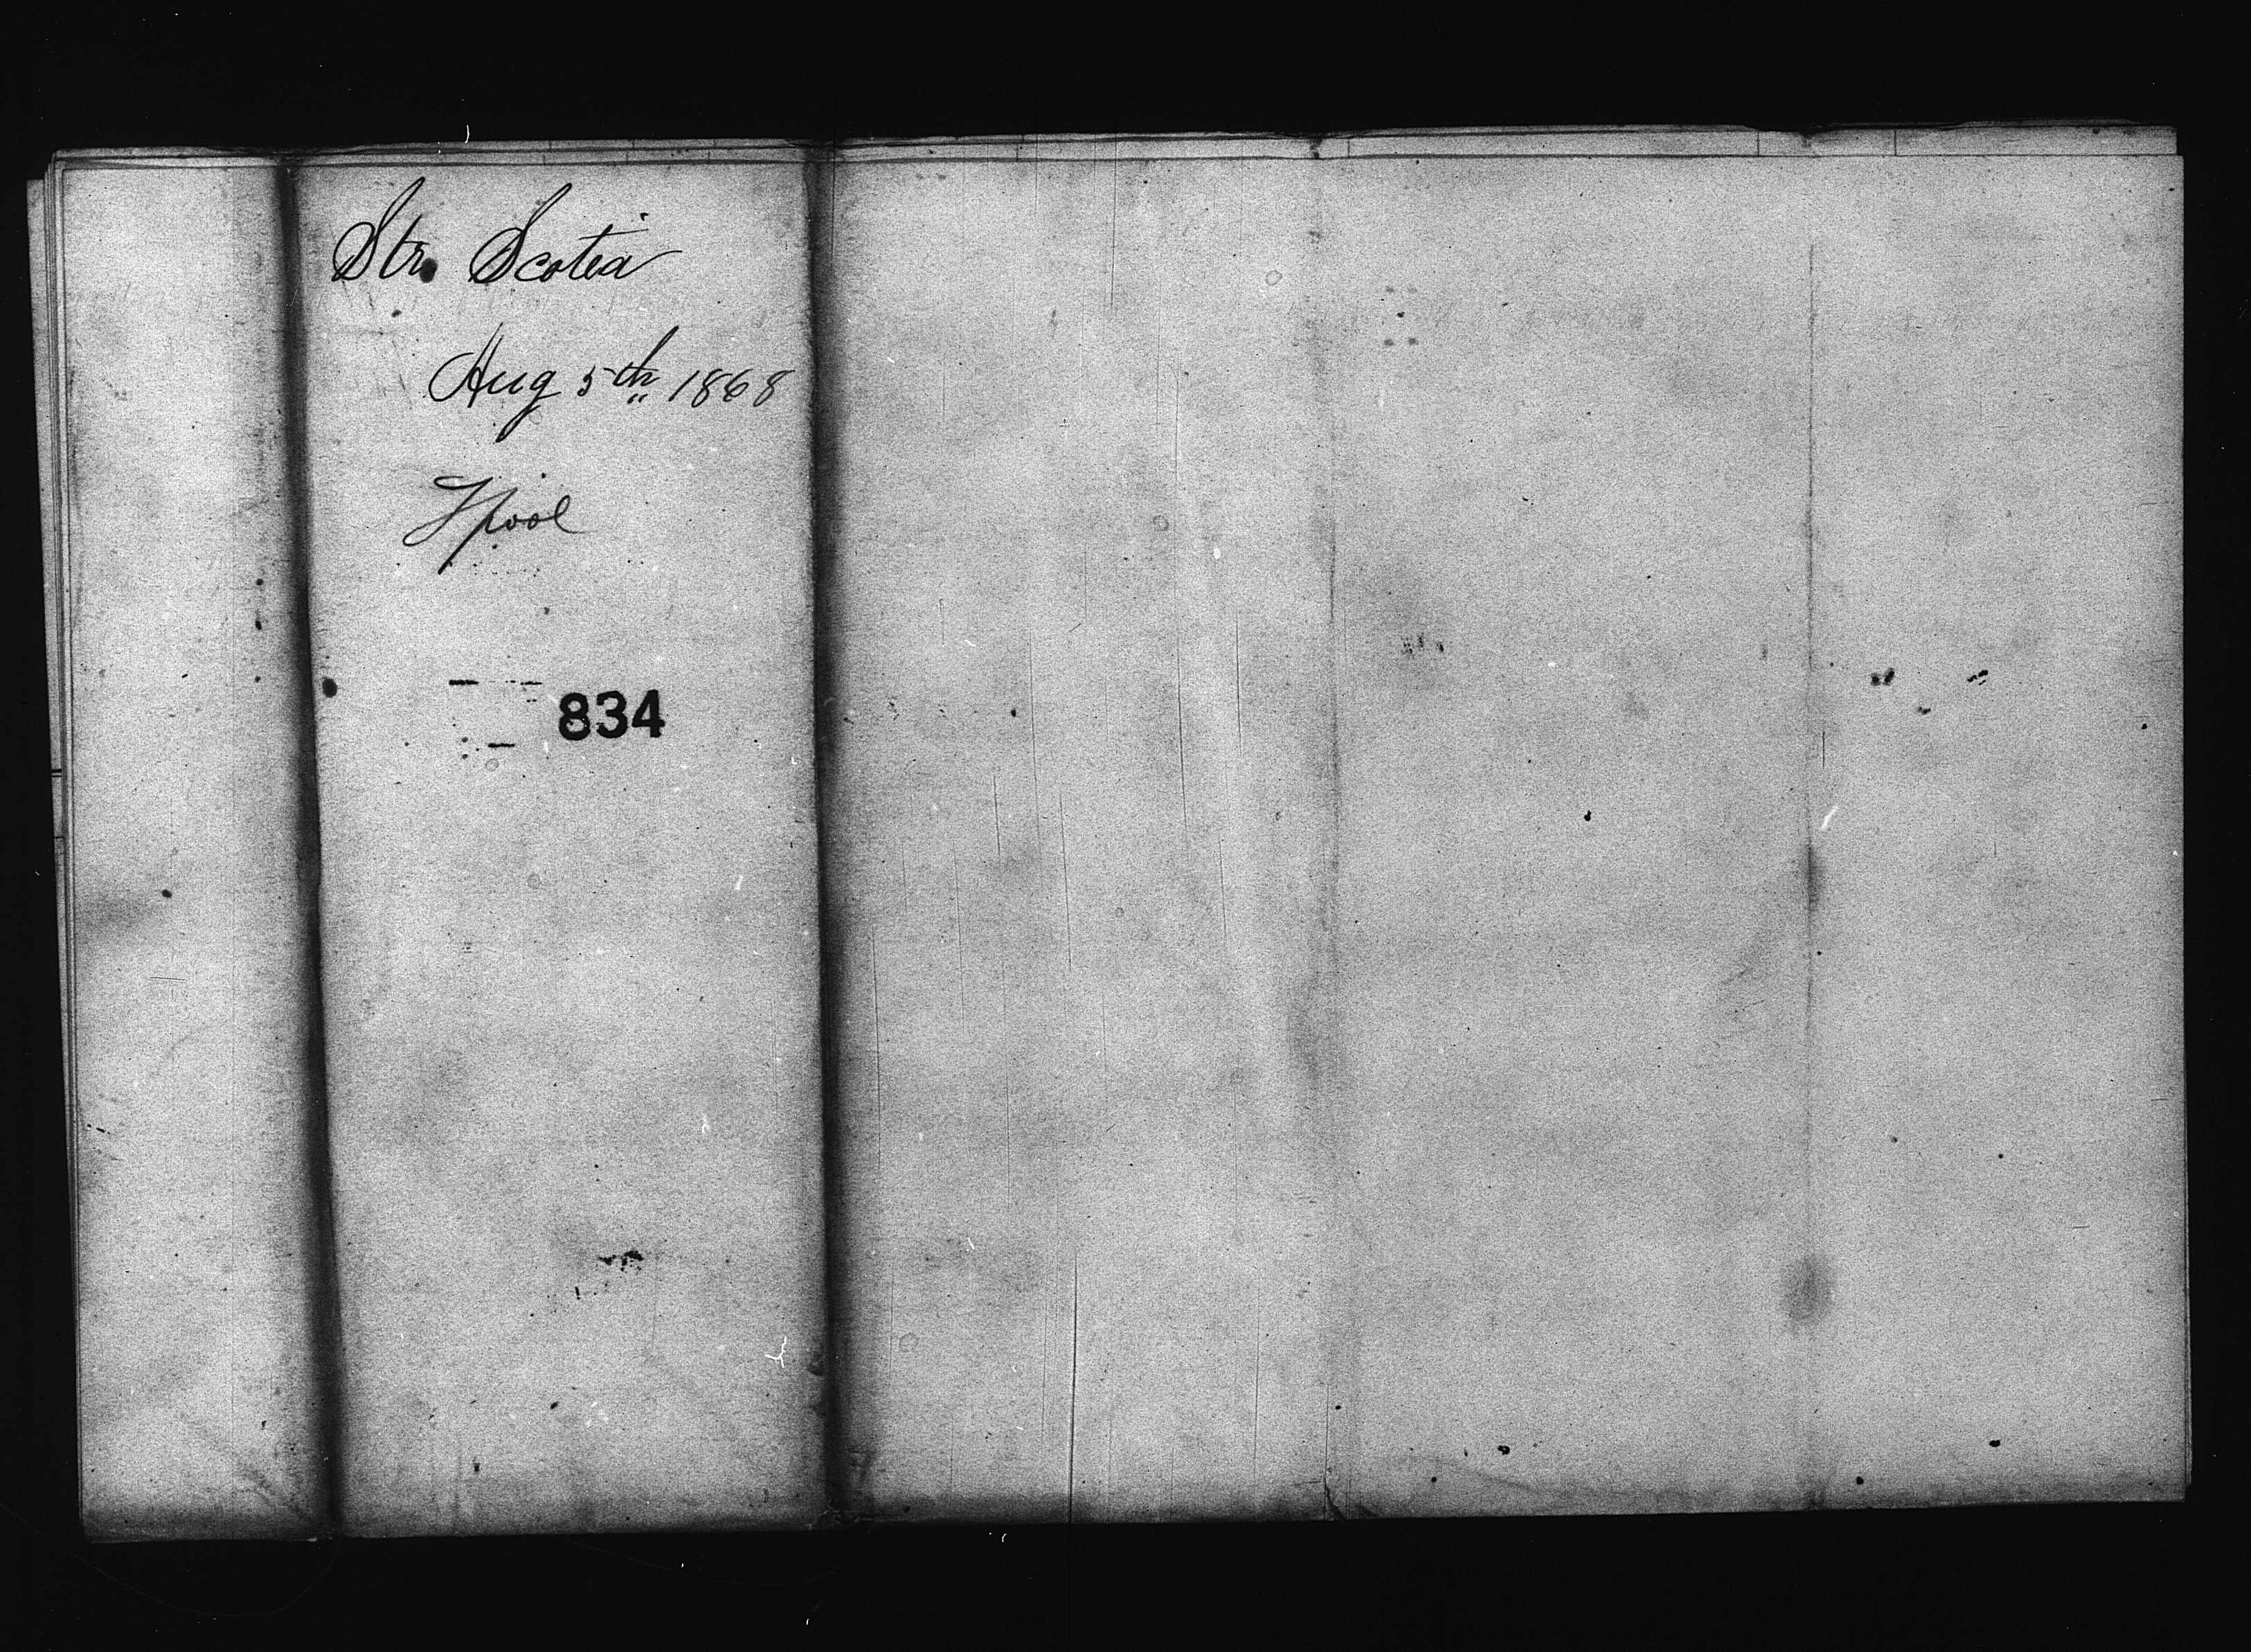 Str. Scotia
Aug 5th 1868
Lpool
834